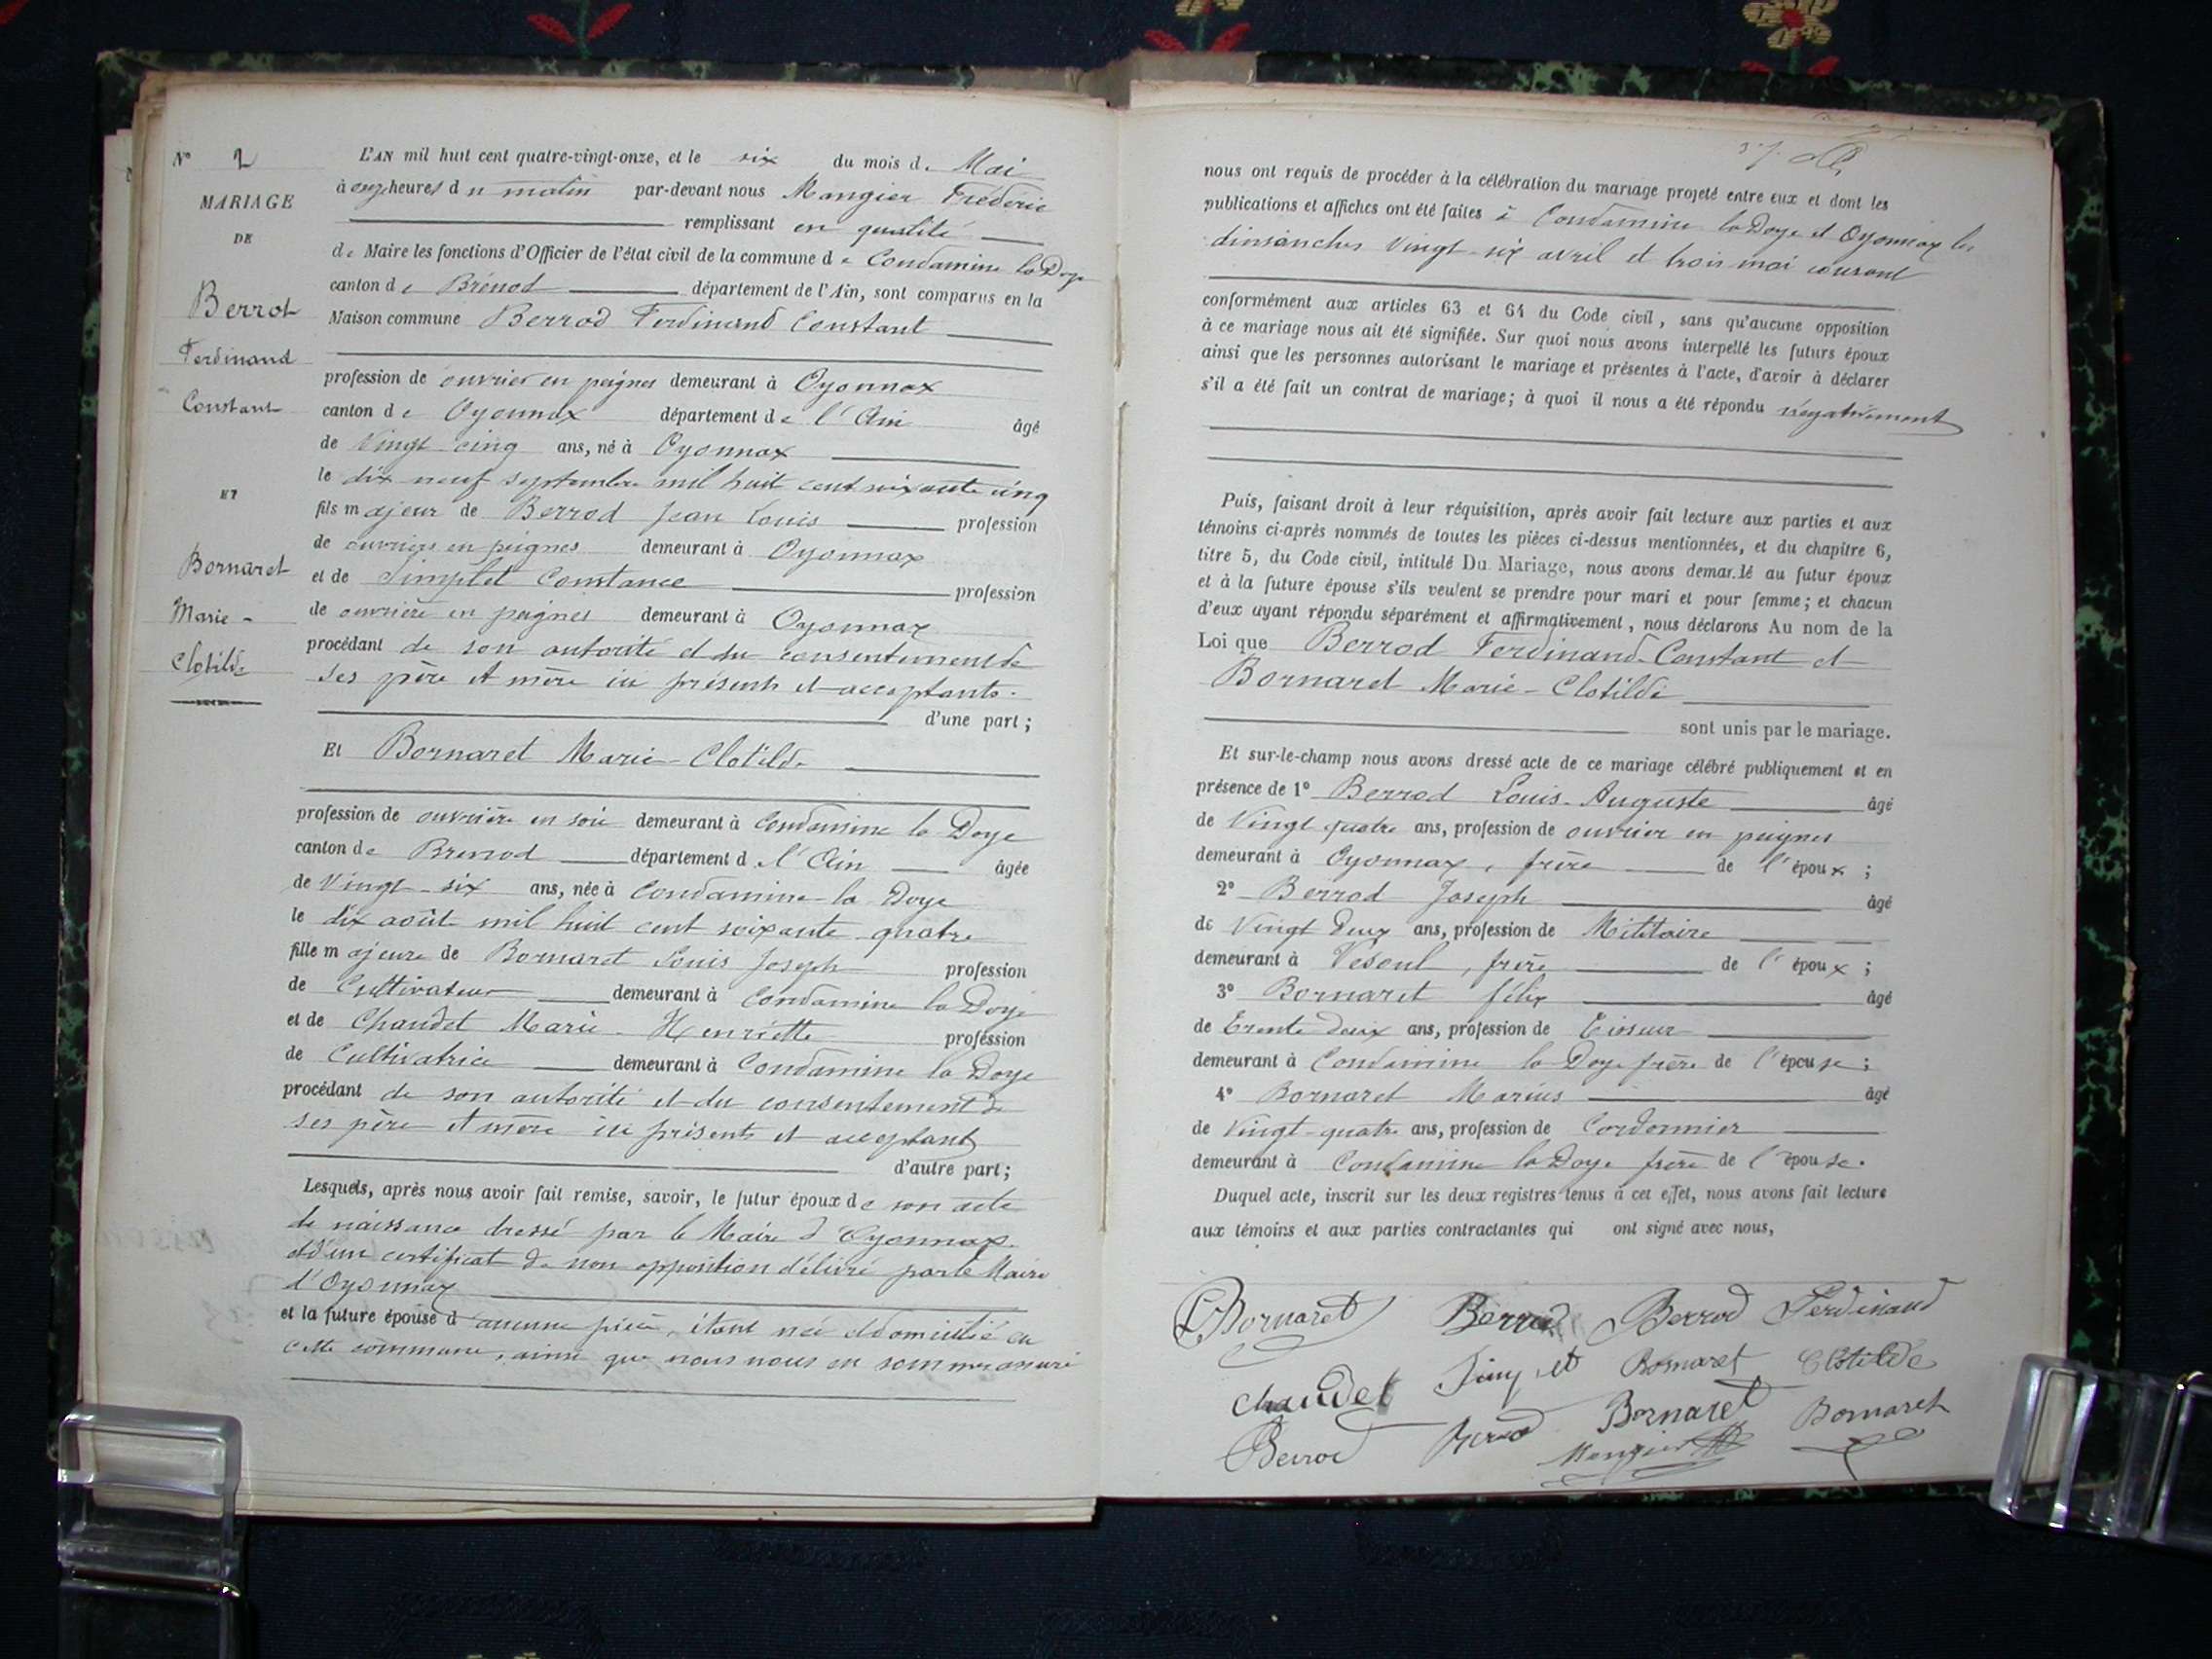 N° 2
MARIAGE
DE
Berrod
Ferdinand
Constant
ET
Bornaret
Marie -
Clotilde
L'AN mil huit cent quatre-vingt-onze, et le six du mois de Mai
à onze heures du matin par-devant nous Mangier Frédéric
remplissant en qualité
de Maire les fonctions d'Officier de l'état civil de la commune de Condamine la Doye
canton de Brénod département de l'Ain, sont comparus en la
Maison commune Berrod Ferdinand Constant
profession de ouvrier en peignes demeurant à Oyonnax
canton de Oyonnax département de l'Ain âgé
de Vingt-cinq ans, né à Oyonnax
le dix neuf septembre mil huit cent soixante cinq
fils majeur de Berrod Jean Louis profession
de ouvrier en peignes demeurant à Oyonnax
et de Simplet Constance profession
de ouvrière en peignes demeurant à Oyonnax
procédant de son autorité et du consentement de
ses père et mère ici présents et acceptants.
d'une part;
Et Bornaret Marie-Clotilde
profession de ouvrière en soie demeurant à Condamine la Doye
canton de Brenod département de l'Ain âgée
de Vingt-six ans, née à Condamine-la Doye
le dix août mil huit cent soixante quatre
fille majeure de Bornaret Louis Joseph profession
de Cultivateur demeurant à Condamine la Doye
et de Chaudet Marie-Henriette profession
de Cultivatrice demeurant à Condamine la Doye
procédant de son autorité et du consentement de
ses père et mère ici présents et acceptant
d'autre part;
Lesquels, après nous avoir fait remise, savoir, le futur époux de son acte
de naissance dressé par le Maire d'Oyonnax
et d'un certificat de non opposition délivré par le Maire
d'Oyonnax
et la future épouse d'aucune pièce, étant née et domiciliée en
cette commune, ainsi que nous nous en sommes assuré
nous ont requis de procéder à la célébration du mariage projeté entre eux et dont les
publications et affiches ont été faites à Condamine la Doye et Oyonnax les
dimanches vingt-six avril et trois mai courant
conformément aux articles 63 et 64 du Code civil, sans qu'aucune opposition
à ce mariage nous ait été signifiée. Sur quoi nous avons interpellé les futurs époux
ainsi que les personnes autorisant le mariage et présentes à l'acte, d'avoir à déclarer
s'il a été fait un contrat de mariage; à quoi il nous a été répondu négativement
Puis, faisant droit à leur réquisition, après avoir fait lecture aux parties et aux
témoins ci-après nommés de toutes les pièces ci-dessus mentionnées, et du chapitre 6,
titre 5, du Code civil, intitulé Du Mariage, nous avons demandé au futur époux
et à la future épouse s'ils veulent se prendre pour mari et pour femme; et chacun
d'eux ayant répondu séparément et affirmativement, nous déclarons Au nom de la
Loi que Berrod Ferdinand-Constant et
Bornaret Marie-Clotilde
sont unis par le mariage.
Et sur-le-champ nous avons dressé acte de ce mariage célébré publiquement et en
présence de 1° Berrod Louis-Auguste âgé
de Vingt quatre ans, profession de ouvrier en peignes
demeurant à Oyonnax, frère de l'époux;
2° Berrod Joseph âgé
de Vingt deux ans, profession de Militaire
demeurant à Vesoul, frère de l'époux;
3° Bornaret félix âgé
de Trente deux ans, profession de Tisseur
demeurant à Condamine la Doye frère de l'épouse;
4° Bornaret Marius âgé
de Vingt-quatre ans, profession de Cordonnier
demeurant à Condamine la Doye frère de l'épouse.
Duquel acte, inscrit sur les deux registres tenus à cet effet, nous avons fait lecture
aux témoins et aux parties contractantes qui ont signé avec nous,
Bornaret Berrod Berrod Ferdinand
Chaudet Bornaret Clotilde
Berrod Berrod Bornaret Bornaret
Mangier